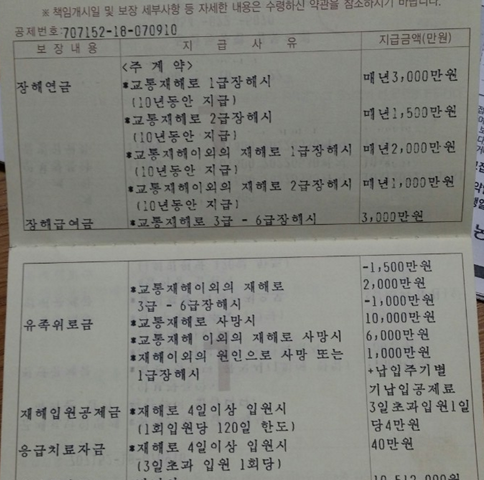 ※ 책임개시일 및 보장 세부사항 등 자세한 내용은 수령하신 약관을 참조하시기 바랍니다.
공제번호:707152-18-070910
보 장 내 용 지 급 사 유 지급금액(만원)
<주 계 약>
장해연금 *교통재해로 1급장해시 매년3,000만원
(10년동안 지급)
*교통재해로 2급장해시 매년1,500만원
(10년동안 지급)
*교통재해이외의 재해로 1급장해시 매년2,000만원
(10년동안 지급)
*교통재해이외의 재해로 2급장해시 매년1,000만원
(10년동안 지급)
장해급여금 *교통재해로 3급 - 6급장해시 3,000만원
-1,500만원
*교통재해이외의 재해로 2,000만원
3급 - 6급장해시 -1,000만원
유족위로금 *교통재해로 사망시 10,000만원
*교통재해 이외의 재해로 사망시 6,000만원
*재해이외의 원인으로 사망 또는 1,000만원
1급장해시 +납입주기별
기납입공제료
재해입원공제금 *재해로 4일이상 입원시 3일초과입원1일
(1회입원당 120일 한도) 당4만원
응급치료자금 *재해로 4일이상 입원시 40만원
(3일초과 입원 1회당)